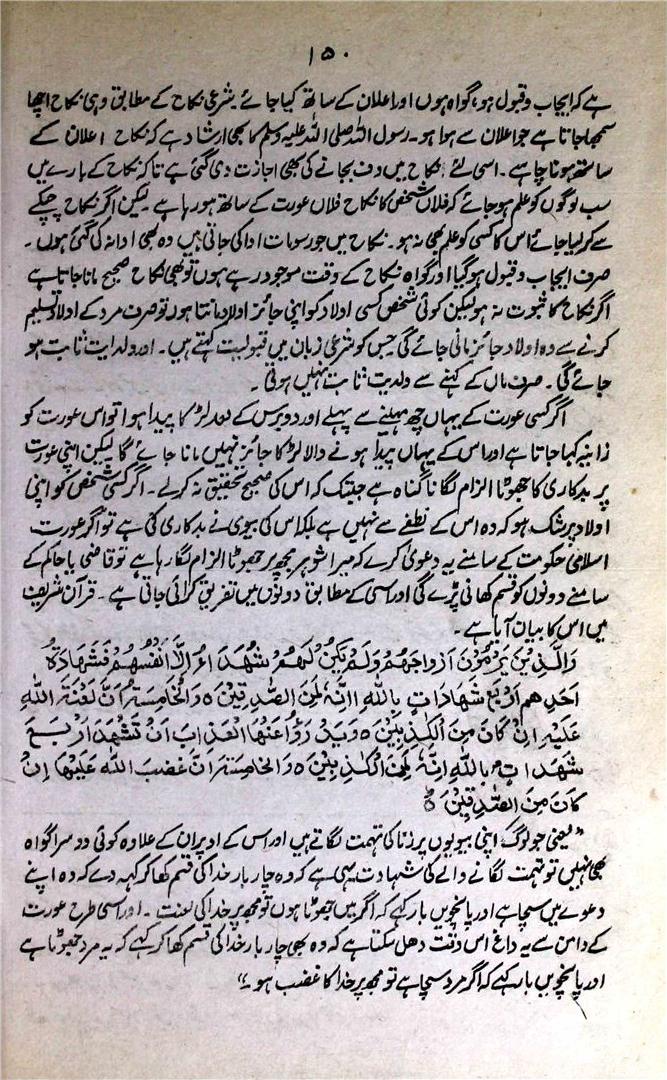 ۱۵۰
ہے کہ ایجاب و قبول ہو، گواہ ہوں اور اعلان کے ساتھ کیا جائے شرعی نکاح کے مطابق وہی نکاح اچھا
سمجھا جاتا ہے جو اعلان سے ہوا ہو۔ رسول اللہ صلی اللہ علیہ وسلم کا بھی ارشاد ہے کہ نکاح اعلان کے
ساتھ ہونا چاہے۔ اسی لئے نکاح میں دف بجانے کی بھی اجازت دی گئی ہے تاکہ نکاح کے بارے میں
سب لوگوں کو علم ہو جائے کہ فلاں شخص کا نکاح فلاں عورت کے ساتھ ہو رہا ہے۔ لیکن اگر نکاح چپکے
سے کر لیا جائے اس کا کسی کو علم بھی نہ ہو۔ نکاح میں جو رسومات ادا کی جاتی ہیں وہ بھی ادا نہ کی گئی ہوں۔
صرف ایجاب و قبول ہو گیا اور گواہ نکاح کے وقت موجود رہے ہوں تو بھی نکاح صحیح مانا جاتا ہے
اگر نکاح کا ثبوت نہ ہو لیکن کوئی شخص کسی اولاد کو اپنی جائز اولاد مانتا ہوں تو صرف مرد کے اولاد تسلیم
کرنے سے وہ اولاد جائز مانی جائے گی جس کو شرعی زبان میں قبولیت کہتے ہیں۔ اور ولدایت ثابت ہو
جائے گی۔ صرف ماں کے کہنے سے ولدیت ثابت نہیں ہوتی۔
اگر کسی عورت کے یہاں چھ مہینے سے پہلے اور دو برس کے بعد لڑکا پیدا ہوا تو اس عورت کو
زانیہ کہا جاتا ہے اور اس کے یہاں پیدا ہونے والا لڑکا جائز نہیں مانا جائے گا لیکن اپنی عورت
پر بدکاری کا جھوٹا الزام لگانا گناہ ہے جبتک کہ اس کی صحیح تحقیق نہ کر لے۔ اگر کسی شخص کو اپنی
اولاد پر شک ہو کہ وہ اس کے نطفے سے نہیں ہے بلکہ اس کی بیوی نے بدکاری کی ہے تو اگر عورت
اسلامی حکومت کے سامنے یہ دعویٰ کرے کہ میرا شوہر مجھ پر جھوٹا الزام لگا رہا ہے تو قاضی یا حاکم کے
سامنے دونوں کو قسم کھانی پڑے گی اور اسی کے مطابق دونوں میں تفریق کرائی جاتی ہے۔ قرآن شریف
میں اس کا بیان آیا ہے۔
وَالَّذِیْنَ یَرْمُوْنَ اَزْوَاجَھُمْ وَلَمْ یَکُنْ لَّھُمْ شُھَدَاءُ اِلَّا اَنْفُسُھُمْ فَشَھَادَۃُ
اَحَدِھِمْ اَرْبَعُ شَھَادَاتٍ بِاللّٰہِ اِنَّہٗ لَمِنَ الصّٰدِقِیْنَ ہ وَالْخَامِسَۃُ اَنَّ لَعْنَۃَ اللّٰہِ
عَلَیْہِ اِنْ کَانَ مِنَ الْکٰذِبِیْنَ ہ وَیَدْرَؤُا عَنْھَا الْعَذَابَ اَنْ تَشْھَدَ اَرْبَعَ
شَھَدَاتٍ بِاللّٰہِ اِنَّہٗ لَمِنَ الْکٰذِبِیْنَ ہ وَالْخَامِسَۃَ اَنَّ غَضَبَ اللّٰہِ عَلَیْھَا اِنْ
کَانَ مِنَ الصّٰدِقِیْنَ ہ
"یعنی جو لوگ اپنی بیویوں پر زنا کی تہمت لگاتے ہیں اور اس کے اوپر ان کے علاوہ کوئی دوسرا گواہ
بھی نہیں تو تہمت لگانے والے کی شہادت یہی ہے کہ وہ چار بار خدا کی قسم کھا کر کہہ دے کہ وہ اپنے
دعوے میں سچا ہے اور پانچویں بار کہے کہ اگر میں جھوٹا ہوں تو مجھ پر خدا کی لعنت۔ اور اسی طرح عورت
کے دامن سے یہ داغ اس وقت دھل سکتا ہے کہ وہ بھی چار بار خدا کی قسم کھا کر کہے کہ یہ مرد جھوٹا ہے
اور پانچویں بار کہے کہ اگر مرد سچا ہے تو مجھ پر خدا کا غضب ہو۔"